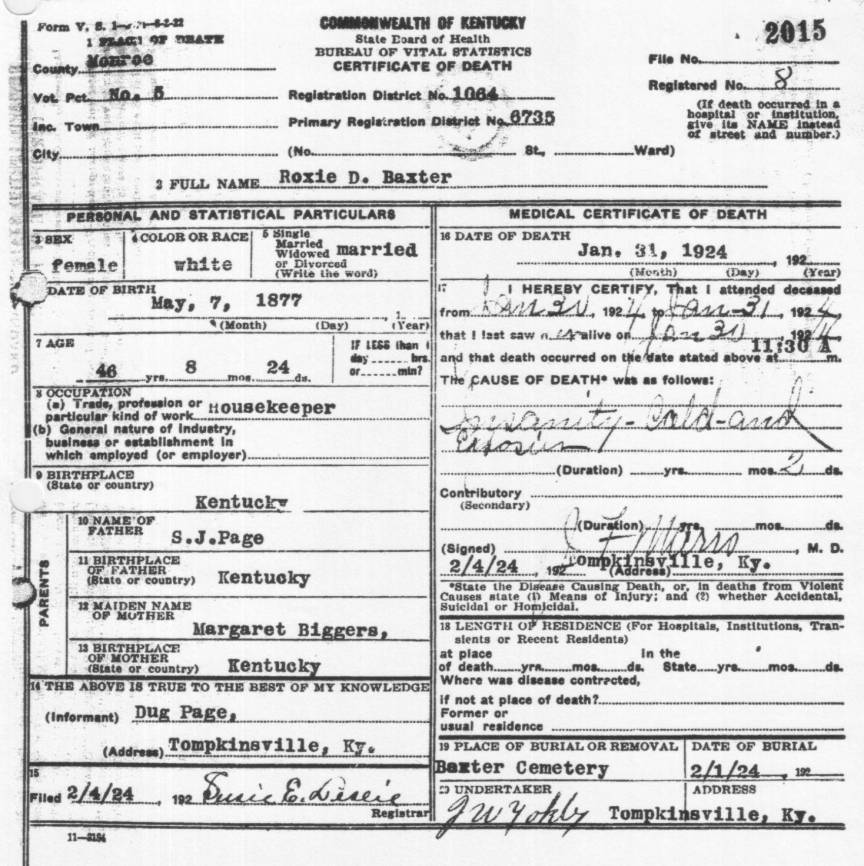 Form V. S. 1
COMMONWEALTH OF KENTUCKY
State Board of Health
BUREAU OF VITAL STATISTICS
CERTIFICATE OF DEATH
2015
File No.
Registered No. 8
(If death occurred in a
hospital or institution,
give its NAME instead
of street and number.)
1 PLACE OF DEATH
County Monroe
Vot. Pct. No. 5
Inc. Town
City
Registration District No. 1064
Primary Registration District No. 6735
(No. St., Ward)
2 FULL NAME Roxie D. Baxter
PERSONAL AND STATISTICAL PARTICULARS
3 SEX
female
4 COLOR OR RACE
white
5 Single
Married
Widowed
or Divorced
(Write the word)
married
DATE OF BIRTH
May, 7, 1877
(Month) (Day) (Year)
7 AGE
46 yrs. 8 mos. 24 ds.
IF LESS than 1
day hrs.
or min?
8 OCCUPATION
(a) Trade, profession or
particular kind of work Housekeeper
(b) General nature of industry,
business or establishment in
which employed (or employer)
9 BIRTHPLACE
(State or country)
Kentucky
PARENTS
10 NAME OF
FATHER
S.J.Page
11 BIRTHPLACE
OF FATHER
(State or country) Kentucky
12 MAIDEN NAME
OF MOTHER
Margaret Biggers,
13 BIRTHPLACE
OF MOTHER
(State or country) Kentucky
14 THE ABOVE IS TRUE TO THE BEST OF MY KNOWLEDGE
(Informant) Dug Page,
(Address) Tompkinsville, Ky.
15
Filed 2/4/24, 192 Susie E.
Registrar
11-3184
MEDICAL CERTIFICATE OF DEATH
16 DATE OF DEATH
Jan. 31, 1924, 192
(Month) (Day) (Year)
17 I HEREBY CERTIFY, That I attended deceased
from Jan 30, 1924, to Jan-31, 1924
that I last saw er alive on Jan 30, 1924
and that death occurred on the date stated above at 11:30 A m.
The CAUSE OF DEATH* was as follows:
Insanity - Cold - and
Exposien
(Duration) yrs. mos. 2 ds.
Contributory
(Secondary)
(Duration) yrs. mos. ds.
(Signed) , M. D.
2/4/24, 192 (Address) Tompkinsville, Ky.
*State the Disease Causing Death, or, in deaths from Violent
Causes state (1) Means of Injury; and (2) whether Accidental,
Suicidal or Homicidal.
18 LENGTH OF RESIDENCE (For Hospitals, Institutions, Tran-
sients or Recent Residents)
at place In the
of death yrs. mos. ds. State yrs. mos. ds.
Where was disease contracted,
if not at place of death?
Former or
usual residence
19 PLACE OF BURIAL OR REMOVAL
Baxter Cemetery
DATE OF BURIAL
2/1/24, 192
20 UNDERTAKER
J W Yokly
ADDRESS
Tompkinsville, Ky.